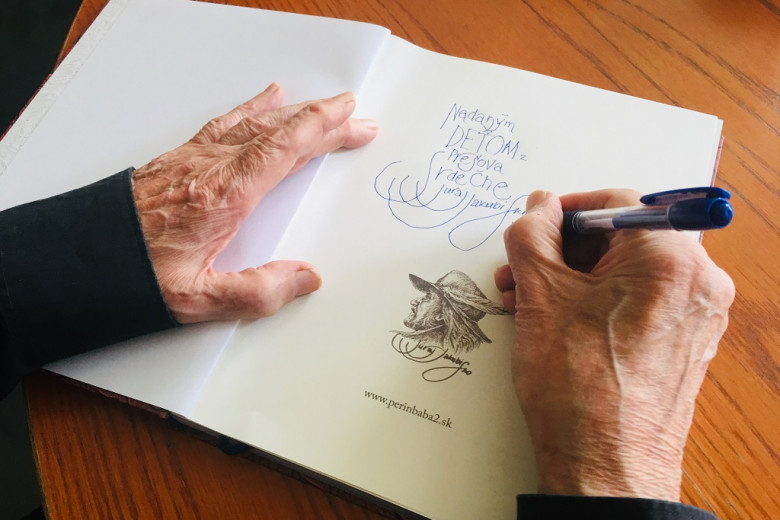 Nadaným
DEŤOM z
Prešova
Srdečne
Juraj Jakubisko
Juraj Jakubisko
www.perinbaba2.sk